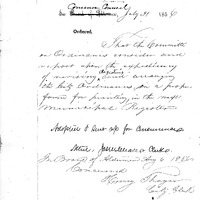 Common Council
July 31 1886
Ordered,
That the Committee
on Ordinances consider and
report upon the expediency
of revising and arranging
the City Ordinances in a proper
form for printing in the next
Municipal Register
Adopted & sent up for concurrence
Clerk.
In Board of Aldermen Aug
Concurred
Henry
City Clerk